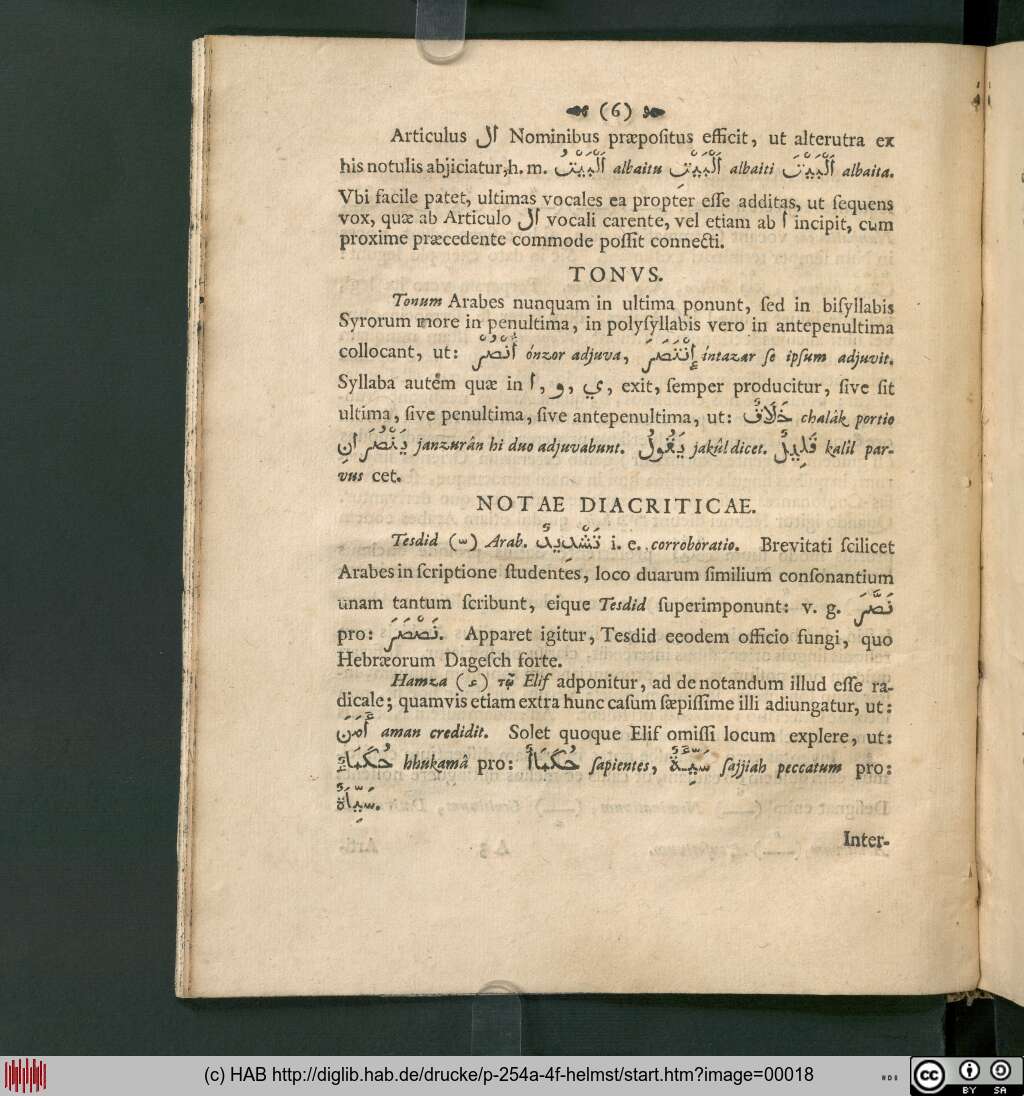 (6)
Articulus ال Nominibus præpoſitus efficit, ut alterutra ex
his notulis abjiciatur, h. m. اَلْبَيْتُ albaitu اَلْبَيْتِ albaiti اَلْبَيْتَ albaita.
Vbi facile patet, ultimas vocales ea propter eſſe additas, ut ſequens
vox, quæ ab Articulo ال vocali carente, vel etiam ab ا incipit, cum
proxime præcedente commode poſſit connecti.
TONVS.
Tonum Arabes nunquam in ultima ponunt, ſed in biſyllabis
Syrorum more in penultima, in polyſyllabis vero in antepenultima
collocant, ut: أُنْصُرْ ónzor adjuva, إِنْتَصَرَ íntazar ſe ipſum adjuvit.
Syllaba autem quæ in ا, و, ي, exit, ſemper producitur, ſive ſit
ultima, ſive penultima, ſive antepenultima, ut: خَلَاقٌ chalâk portio
يَنْصُرَانِ janzurân hi duo adjuvabunt. يَقُولُ jakûl dicet. قَلِيلٌ kalîl par-
vus cet.
NOTAE DIACRITICAE.
Tesdid ( ّ ) Arab. تَشْدِيدٌ i. e. corroboratio. Brevitati ſcilicet
Arabes in ſcriptione ſtudentes, loco duarum ſimilium conſonantium
unam tantum ſcribunt, eique Tesdid ſuperimponunt: v. g. نَصَّرَ
pro: نَصْصَرَ. Apparet igitur, Tesdid eeodem officio fungi, quo
Hebræorum Dageſch forte.
Hamza (ء) τῷ Elif adponitur, ad denotandum illud eſſe ra-
dicale; quamvis etiam extra hunc caſum ſæpiſſime illi adiungatur, ut:
أَمَنَ aman credidit. Solet quoque Elif omiſſi locum explere, ut:
حُكَمَاءٌ hhukamâ pro: حُكَمَاأٌ ſapientes, سَيِّئَةٌ ſajjiah peccatum pro:
سَيِّأَةٌ.
Inter-
(c) HAB http://diglib.hab.de/drucke/p-254a-4f-helmst/start.htm?image=00018
cc BY SA